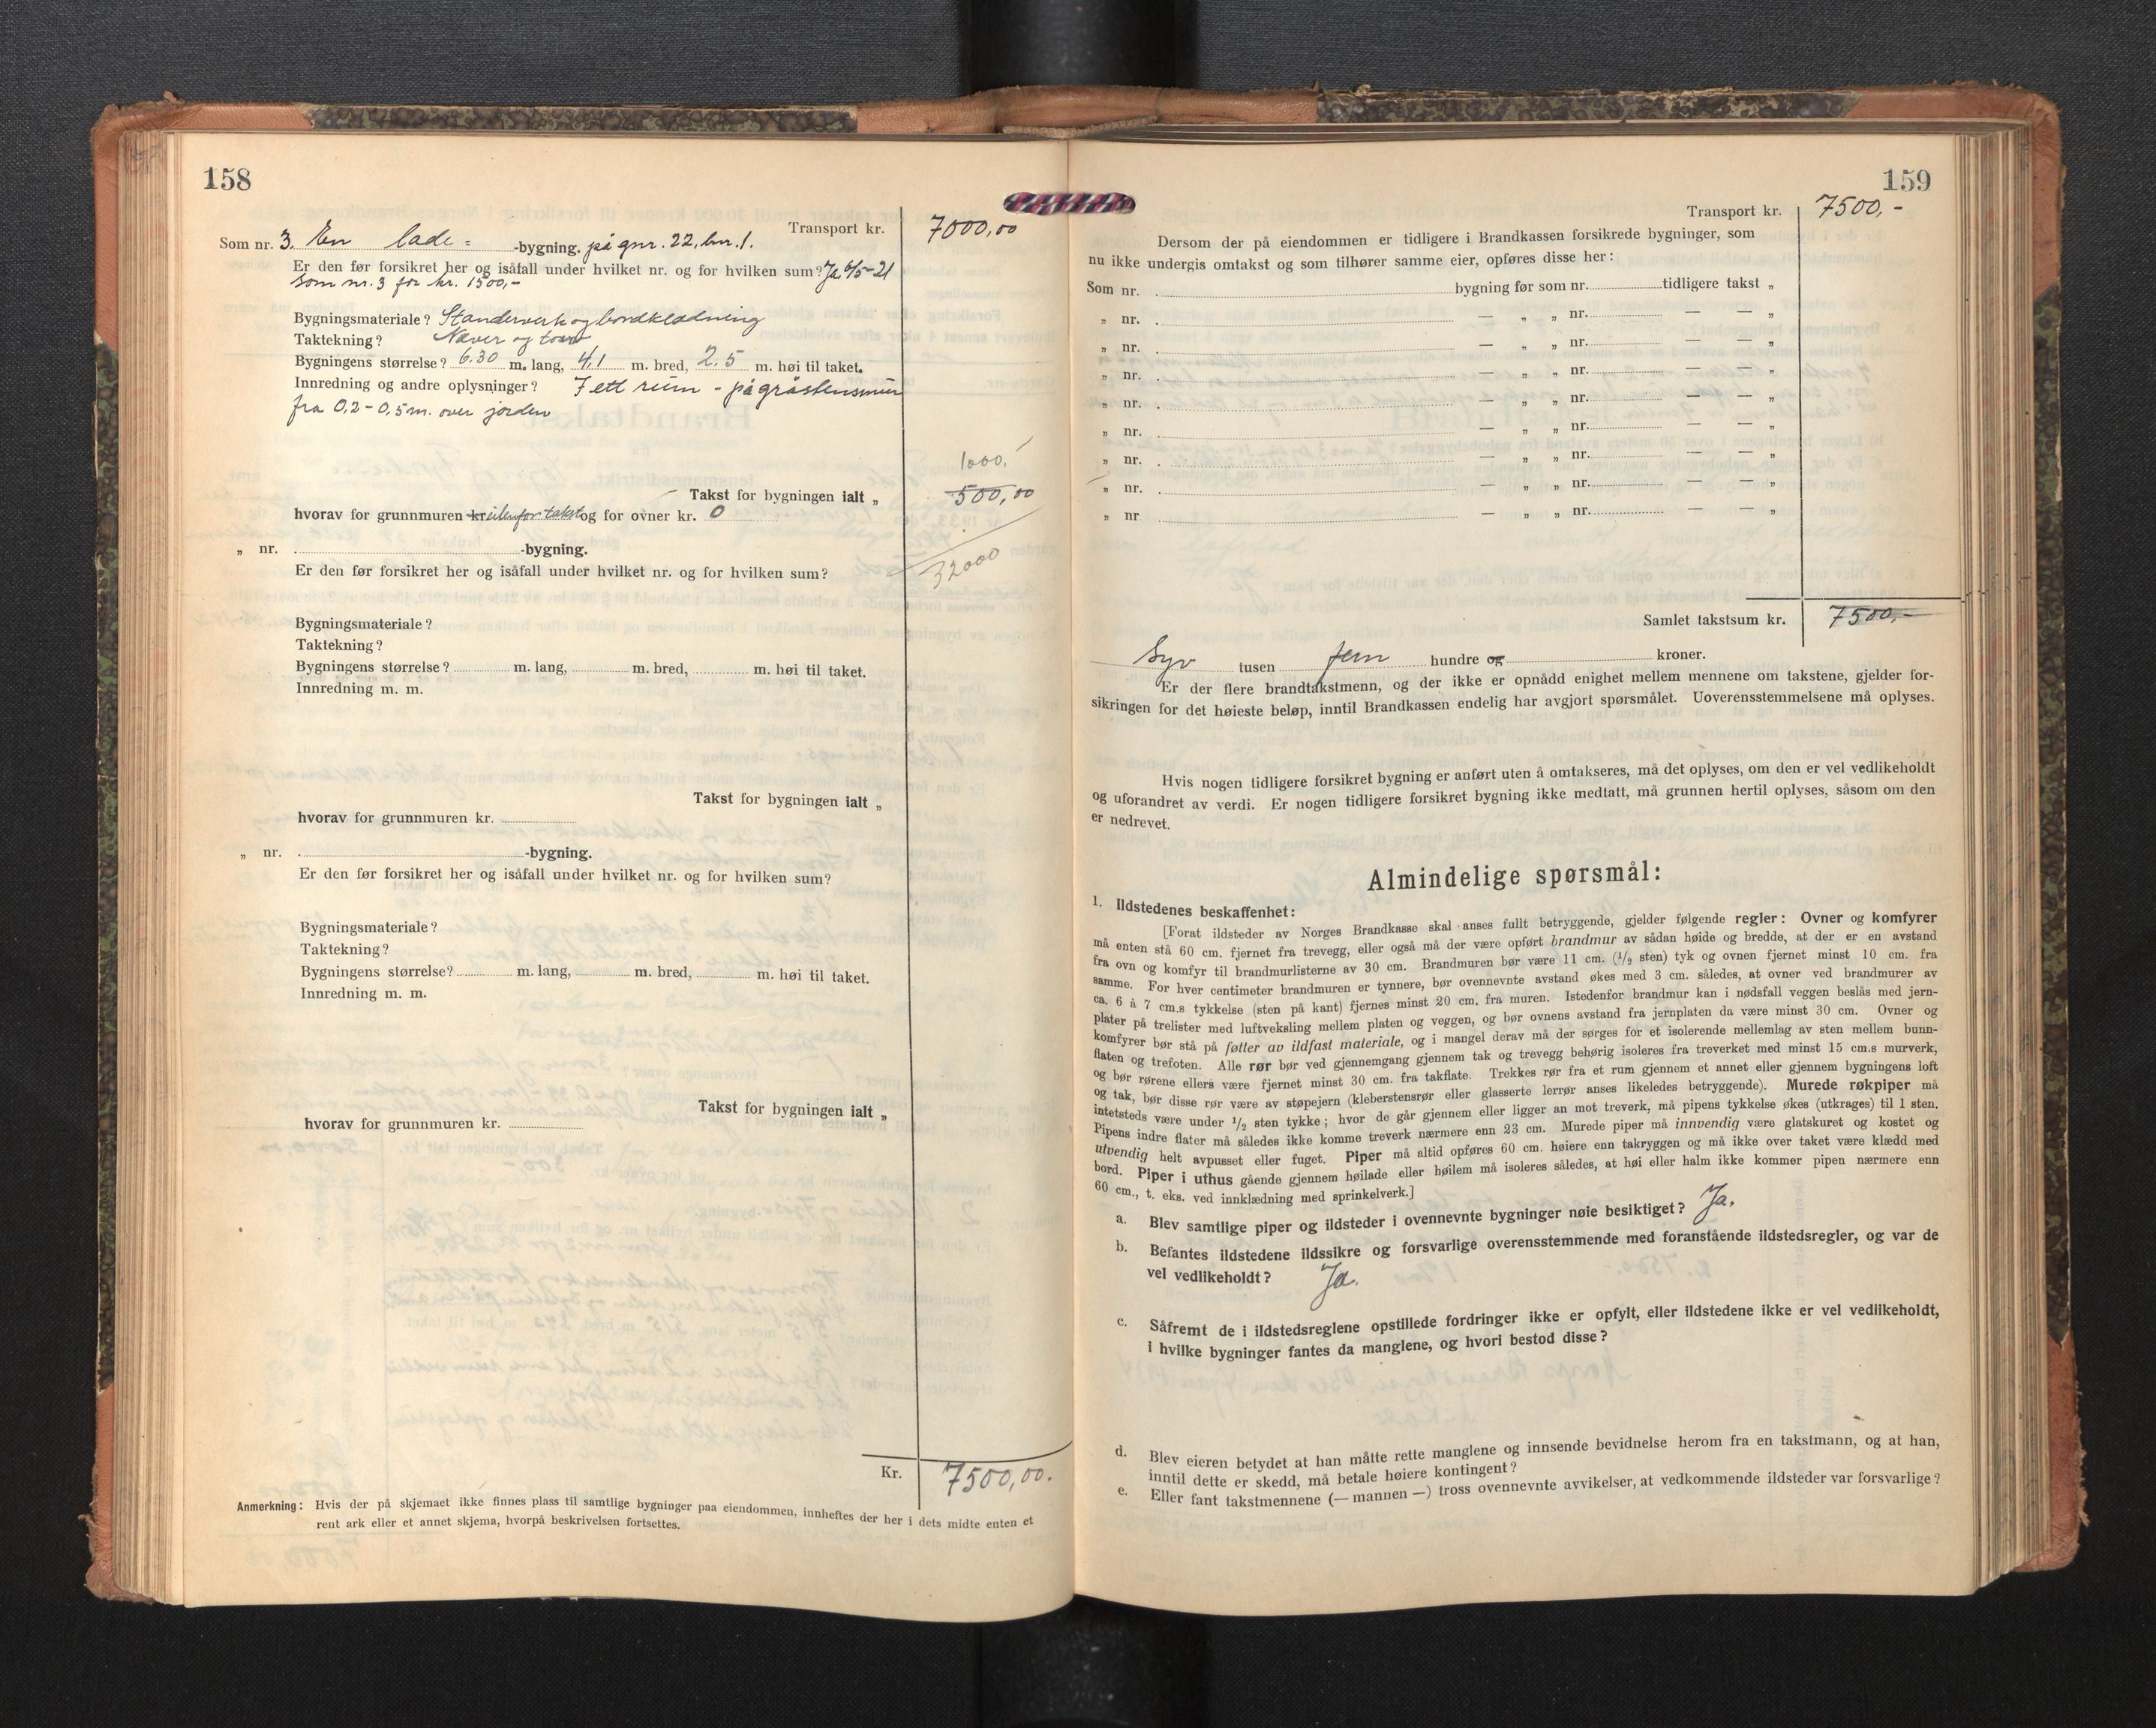 158
Transport kr. 7000,00
Som nr. 3. En lade = -bygning. på gnr. 22, bnr. 1.
Er den før forsikret her og isåfall under hvilket nr. og for hvilken sum? Ja 6/5-21
som nr. 3 for kr. 1500,-
Bygningsmateriale? Standerverk og bordklædning
Taktekning? Næver og torv
Bygningens størrelse? 6.30 m. lang, 4,1 m. bred, 2.5 m. høi til taket.
Innredning og andre oplysninger? I ett rum - på gråstensmur
fra 0,2 - 0,5 m. over jorden
1000,-
Takst for bygningen ialt „ 500,00
hvorav for grunnmuren kr. og for ovner kr. 0
„ nr. -bygning.
32000
Er den før forsikret her og isåfall under hvilket nr. og for hvilken sum?
Bygningsmateriale?
Taktekning?
Bygningens størrelse? m. lang, m. bred, m. høi til taket.
Innredning m. m.
Takst for bygningen ialt „
hvorav for grunnmuren kr.
„ nr. -bygning.
Er den før forsikret her og isåfall under hvilket nr. og for hvilken sum?
Bygningsmateriale?
Taktekning?
Bygningens størrelse? m. lang, m. bred, m. høi til taket.
Innredning m. m.
Takst for bygningen ialt „
hvorav for grunnmuren kr.
Kr. 7500,00.
Anmerkning: Hvis der på skjemaet ikke finnes plass til samtlige bygninger paa eiendommen, innheftes der her i dets midte enten et
rent ark eller et annet skjema, hvorpå beskrivelsen fortsettes.
159
Transport kr. 7500,-
Dersom der på eiendommen er tidligere i Brandkassen forsikrede bygninger, som
nu ikke undergis omtakst og som tilhører samme eier, opføres disse her:
Som nr. bygning før som nr. tidligere takst „
„ nr. — „ „ nr. — — „
„ nr. — „ „ nr. — — „
„ nr. — „ „ nr. — — „
„ nr. — „ „ nr. — — „
„ nr. — „ „ nr. — — „
„ nr. — „ „ nr. — — „
„ nr. — „ „ nr. — — „
„ nr — „ „ nr. — „
Samlet takstsum kr. 7500,-
Syv tusen fem hundre og kroner.
Er der flere brandtakstmenn, og der ikke er opnådd enighet mellem mennene om takstene, gjelder for-
sikringen for det høieste beløp, inntil Brandkassen endelig har avgjort spørsmålet. Uoverensstemmelsene må oplyses.
Hvis nogen tidligere forsikret bygning er anført uten å omtakseres, må det oplyses, om den er vel vedlikeholdt
og uforandret av verdi. Er nogen tidligere forsikret bygning ikke medtatt, må grunnen hertil oplyses, såsom om den
er nedrevet.
Almindelige spørsmål:
1. Ildstedenes beskaffenhet:
[Forat ildsteder av Norges Brandkasse skal anses fullt betryggende, gjelder følgende regler: Ovner og komfyrer
må enten stå 60 cm. fjernet fra trevegg, eller også må der være opført brandmur av sådan høide og bredde, at der er en avstand
fra ovn og komfyr til brandmurlisterne av 30 cm. Brandmuren bør være 11 cm. (1/2 sten) tyk og ovnen fjernet minst 10 cm. fra
samme. For hver centimeter brandmuren er tynnere, bør ovennevnte avstand økes med 3 cm. således, at ovner ved brandmurer av
ca. 6 à 7 cm.s tykkelse (sten på kant) fjernes minst 20 cm. fra muren. Istedenfor brandmur kan i nødsfall veggen beslås med jern-
plater på trelister med luftveksling mellem platen og veggen, og bør ovnens avstand fra jernplaten da være minst 30 cm. Ovner og
komfyrer bør stå på føtter av ildfast materiale, og i mangel derav må der sørges for et isolerende mellemlag av sten mellem bunn-
flaten og trefoten. Alle rør bør ved gjennemgang gjennem tak og trevegg behørig isoleres fra treverket med minst 15 cm.s murverk,
og bør rørene ellers være fjernet minst 30 cm. fra takflate. Trekkes rør fra et rum gjennem et annet eller gjennem bygningens loft
og tak, bør disse rør være av støpejern (kleberstensrør eller glasserte lerrør anses likeledes betryggende). Murede røkpiper må
intetsteds være under 1/2 sten tykke; hvor de går gjennem eller ligger an mot treverk, må pipens tykkelse økes (utkrages) til 1 sten.
Pipens indre flater må således ikke komme treverk nærmere enn 23 cm. Murede piper må innvendig være glatskuret og kostet og
utvendig helt avpusset eller fuget. Piper må altid opføres 60 cm. høiere enn takryggen og må ikke over taket være klædd med
bord. Piper i uthus gående gjennem høilade eller høilem må isoleres således, at høi eller halm ikke kommer pipen nærmere enn
60 cm., t. eks. ved innklædning med sprinkelverk.]
a. Blev samtlige piper og ildsteder i ovennevnte bygninger nøie besiktiget? Ja.
b. Befantes ildstedene ildssikre og forsvarlige overensstemmende med foranstående ildstedsregler, og var de
vel vedlikeholdt? Ja.
c. Såfremt de i ildstedsreglene opstillede fordringer ikke er opfylt, eller ildstedene ikke er vel vedlikeholdt,
i hvilke bygninger fantes da manglene, og hvori bestod disse?
d. Blev eieren betydet at han måtte rette manglene og innsende bevidnelse herom fra en takstmann, og at han,
inntil dette er skedd, må betale høiere kontingent?
e. Eller fant takstmennene (— mannen —) tross ovennevnte avvikelser, at vedkommende ildsteder var forsvarlige?